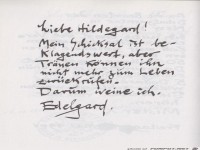 Liebe Hildegard!
Mein Schicksal ist be-
klagenswert, aber
Tränen können ihn
nicht mehr zum Leben
zurückrufen.
Darum weine ich.
Edelgard.